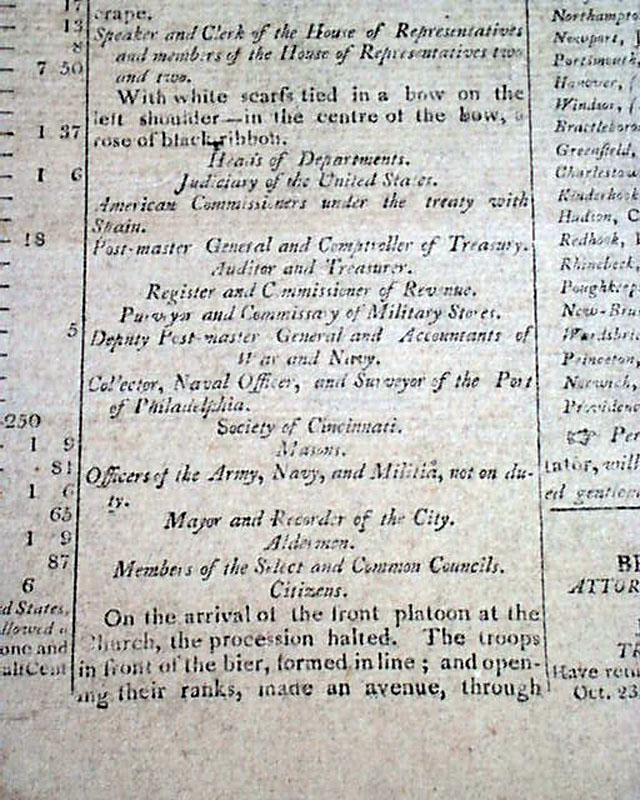 17
13
8
7 50
1 37
1 6
18
5
250
1 9
81
1 6
65
1 9
87
6
ed States,
allowed a
one and
alf Cent
crape.
Speaker and Clerk of the House of Representatives
and members of the House of Representatives two
and two.
With white scarfs tied in a bow on the
left shoulder—in the centre of the bow, a
rose of black ribbon.
Heads of Departments.
Judiciary of the United States.
American Commissioners under the treaty with
Spain.
Post-master General and Comptroller of Treasury.
Auditor and Treasurer.
Register and Commissioner of Revenue.
Purveyor and Commissary of Military Stores.
Deputy Post-master General and Accountants of
War and Navy.
Collector, Naval Officer, and Surveyor of the Port
of Philadelphia.
Society of Cincinnati.
Masons.
Officers of the Army, Navy, and Militia, not on du-
ty.
Mayor and Recorder of the City.
Aldermen.
Members of the Select and Common Councils.
Citizens.
On the arrival of the front platoon at the
Church, the procession halted. The troops
in front of the bier, formed in line; and open-
ing their ranks, made an avenue, through
Northampto
Newport,
Portsmouth,
Hanover,
Windsor,
Brattlebor
Greenfield,
Charlestow
Kinderhook
Hudson, C
Redhook,
Rhinebeck,
Poughkeep
New-Bru
Wardsbri
Princeton,
Norwich,
Providenc
☞ Per
tator, will
ed gentle
BE
ATTOR
TR
Have retu
Oct. 23